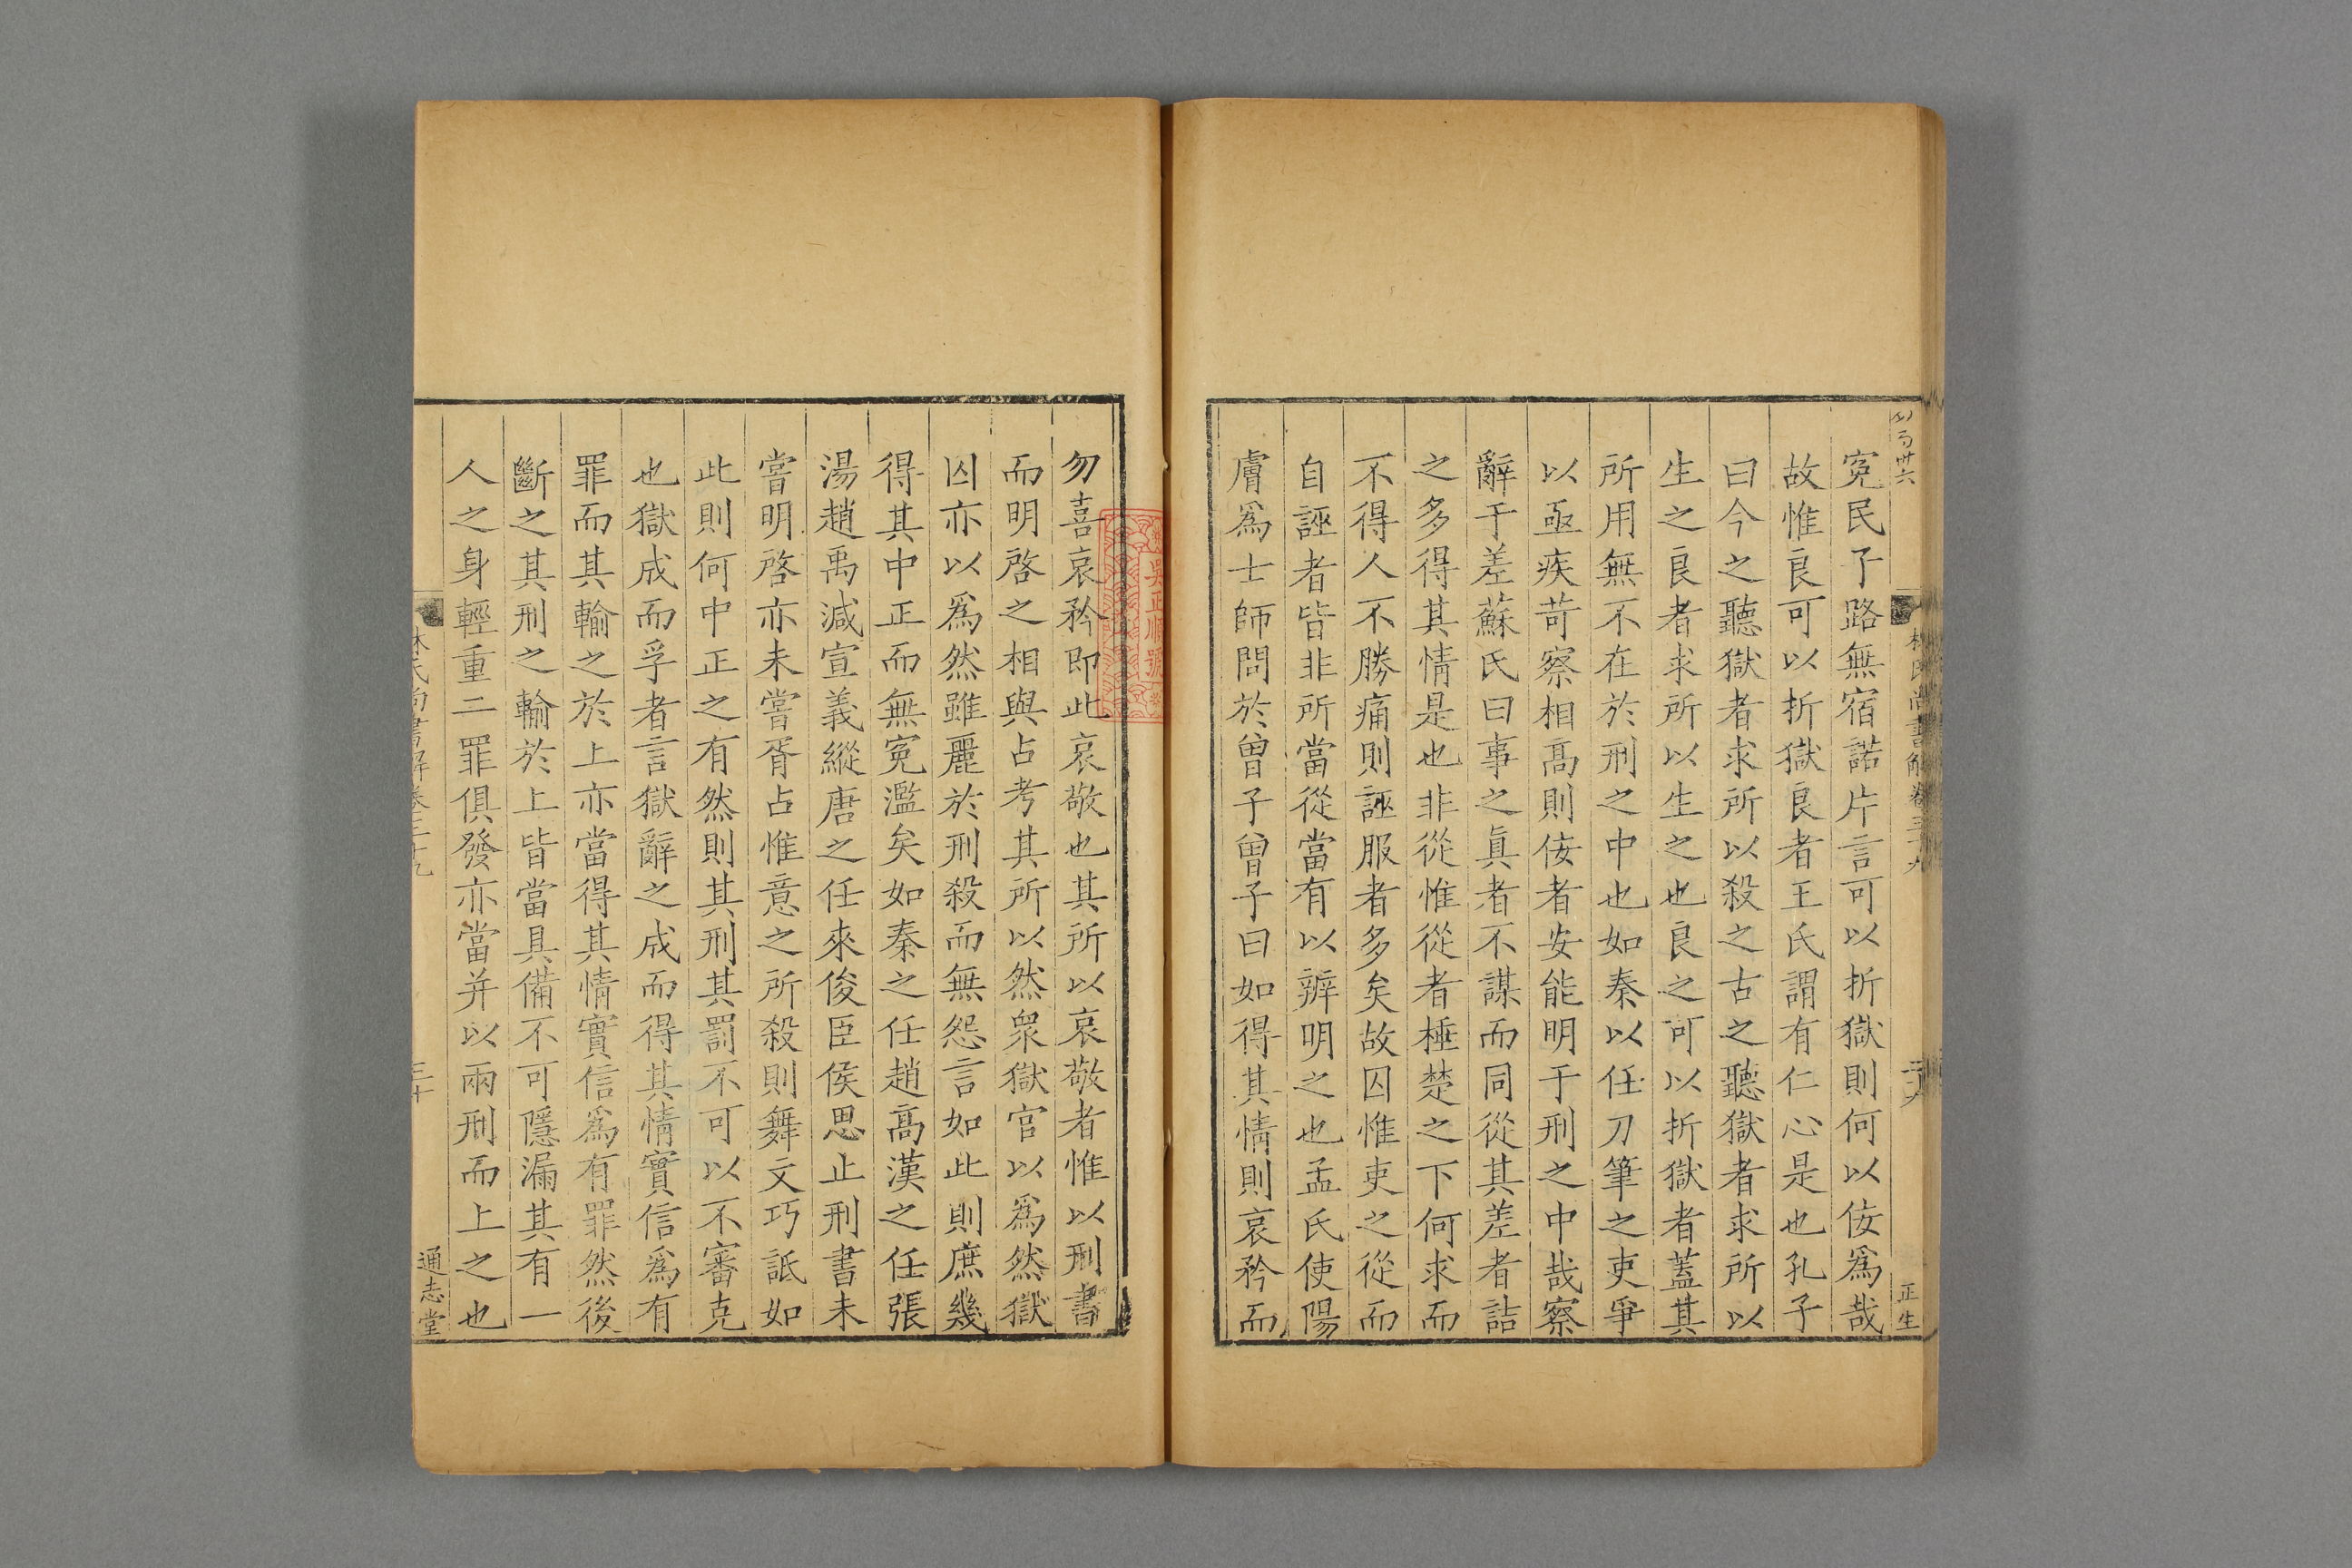 冤民子路無宿諾片言可以折獄則何以佞爲哉
故惟良可以折獄良者王氏謂有仁心是也孔子
曰今之聽獄者求所以殺之古之聽獄者求所以
生之良者求所以生之也良之可以折獄者蓋其
所用無不在於刑之中也如秦以任刀筆之吏爭
以亟疾苛察相高則佞者安能明于刑之中哉察
辭于差蘇氏曰事之眞者不謀而同從其差者詰
之多得其情是也非從惟從者棰楚之下何求而
不得人不勝痛則誣服者多矣故囚惟吏之從而
自誣者皆非所當從當有以辨明之也孟氏使陽
膚爲士師問於曾子曾子曰如得其情則哀矜而
勿喜哀矜卽此哀敬也其所以哀敬者惟以刑書
而明啓之相與占考其所以然衆獄官以爲然獄
囚亦以爲然雖麗於刑殺而無怨言如此則庶幾
得其中正而無冤濫矣如秦之任趙高漢之任張
湯趙禹減宣義縱唐之任來俊臣侯思止刑書未
嘗明啓亦未嘗胥占惟意之所殺則舞文巧詆如
此則何中正之有然則其刑其罰不可以不審克
也獄成而孚者言獄辭之成而得其情實信爲有
罪而其輸之於上亦當得其情實信爲有罪然後
斷之其刑之輸於上皆當具備不可隱漏其有一
人之身輕重二罪俱發亦當并以兩刑而上之也
林氏尚書解卷三十九
三十
通志堂
林氏尚書解卷三十九
正生